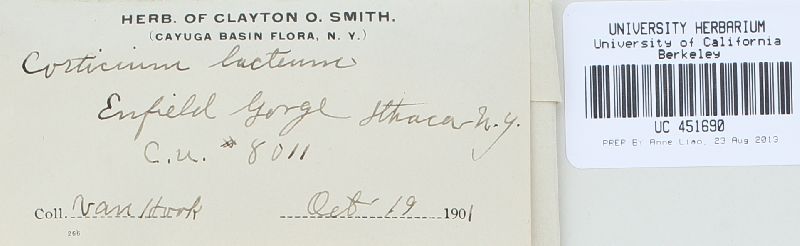 HERB. OF CLAYTON O. SMITH.
(CAYUGA BASIN FLORA, N. Y.)
Corticium lacteum
Enfield Gorge Ithaca N.Y.
C.U. # 8011
Coll. Van Hook Oct 19 1901
266
UNIVERSITY HERBARIUM
University of California
Berkeley
UC 451690
PREP BY Anne Liao, 23 Aug 2013